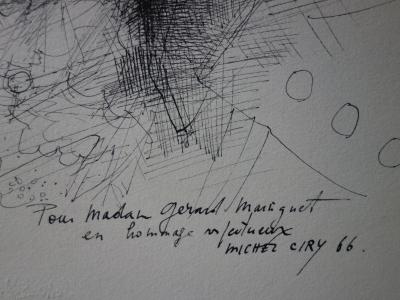 Pour Madam Gerard Marquet
en hommage respectueux
MICHEL CIRY 66.